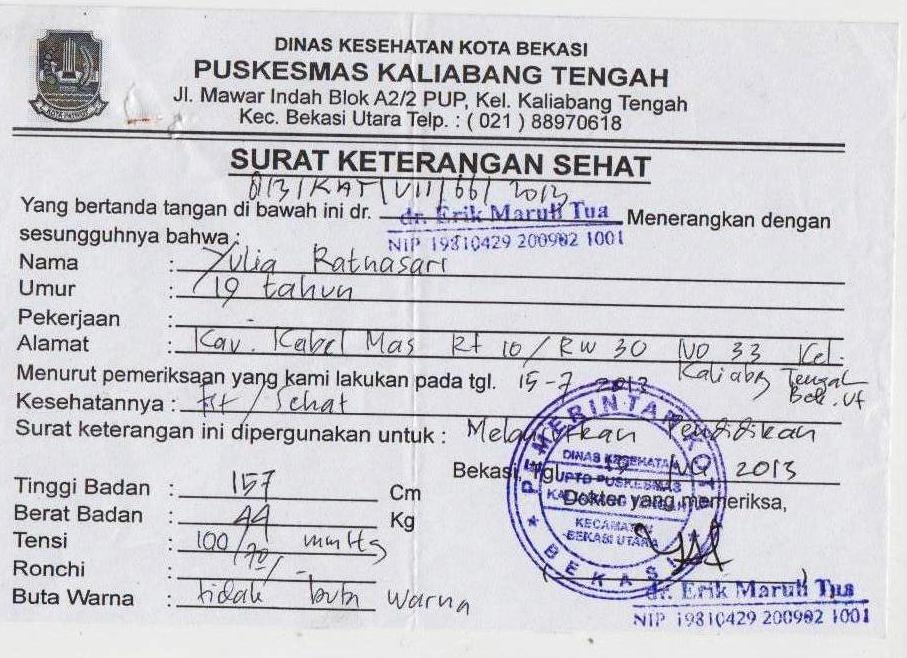 DINAS KESEHATAN KOTA BEKASI
PUSKESMAS KALIABANG TENGAH
Jl. Mawar Indah Blok A2/2 PUP, Kel. Kaliabang Tengah
Kec. Bekasi Utara Telp. : ( 021 ) 88970618
SURAT KETERANGAN SEHAT
/ KAT / VII / 66 / 2013
Yang bertanda tangan di bawah ini dr. dr. Erik Maruli Tua Menerangkan dengan
NIP 19810429 200902 1001
sesungguhnya bahwa :
Nama : Yulia Ratnasari
Umur : 19 tahun
Pekerjaan :
Alamat : Kav. Kabel Mas Rt 10 / RW 30 NO 33 Kel.
Kaliabg Tengah
Bek. Ut
Menurut pemeriksaan yang kami lakukan pada tgl. 15-7 2013
Kesehatannya : Fit / Sehat
Surat keterangan ini dipergunakan untuk : Melanjutkan Pendidikan
Bekasi, Tgl. 2013
Dokter yang memeriksa,
Tinggi Badan : 157 Cm
Berat Badan : 44 Kg
Tensi : 100/70 mmHg
Ronchi : -/-
Buta Warna : tidak buta warna
PEMERINTAH KOTA
DINAS KESEHATAN
UPTD PUSKESMAS
KECAMATAN
BEKASI UTARA
BEKASI
dr. Erik Maruli Tua
NIP 19810429 200902 1001